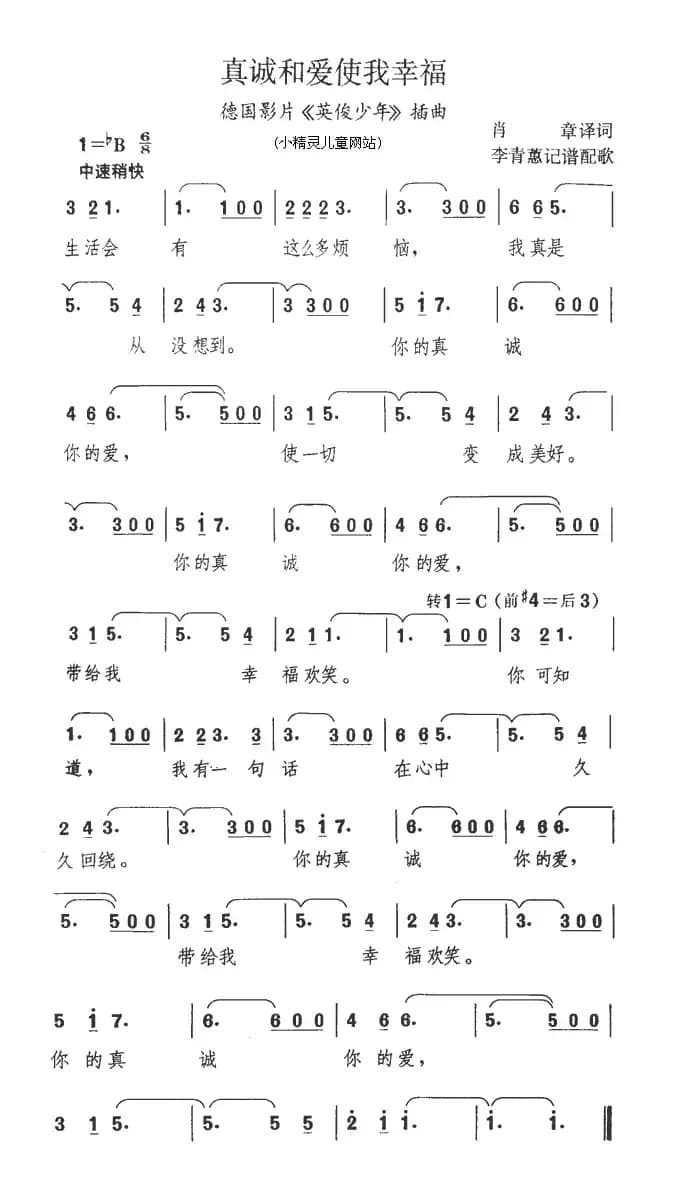 真诚和爱使我幸福
德国影片《英俊少年》插曲
1=♭B 6/8
(小精灵儿童网站)
肖 章译词
中速稍快
李青蕙记谱配歌
3 2 1. | 1. 1 0 0 | 2 2 2 3. | 3. 3 0 0 | 6 6 5. |
生活会 有 这么多烦 恼, 我真是
5. 5 4 | 2 4 3. | 3 3 0 0 | 5 i 7. | 6. 6 0 0 |
从 没想到。 你的真 诚
4 6 6. | 5. 5 0 0 | 3 1 5. | 5. 5 4 | 2 4 3. |
你的爱, 使一切 变 成美好。
3. 3 0 0 | 5 i 7. | 6. 6 0 0 | 4 6 6. | 5. 5 0 0 |
你的真 诚 你的爱,
转1=C (前#4=后3)
3 1 5. | 5. 5 4 | 2 1 1. | 1. 1 0 0 | 3 2 1. |
带给我 幸 福欢笑。 你可知
1. 1 0 0 | 2 2 3. 3 | 3. 3 0 0 | 6 6 5. | 5. 5 4 |
道, 我有一 句 话 在心中 久
2 4 3. | 3. 3 0 0 | 5 i 7. | 6. 6 0 0 | 4 6 6. |
久回绕。 你的真 诚 你的爱,
5. 5 0 0 | 3 1 5. | 5. 5 4 | 2 4 3. | 3. 3 0 0 |
带给我 幸 福欢笑。
5 i 7. | 6. 6 0 0 | 4 6 6. | 5. 5 0 0 |
你的真 诚 你的爱,
3 1 5. | 5. 5 5 | 2 i i. | i. i. ‖